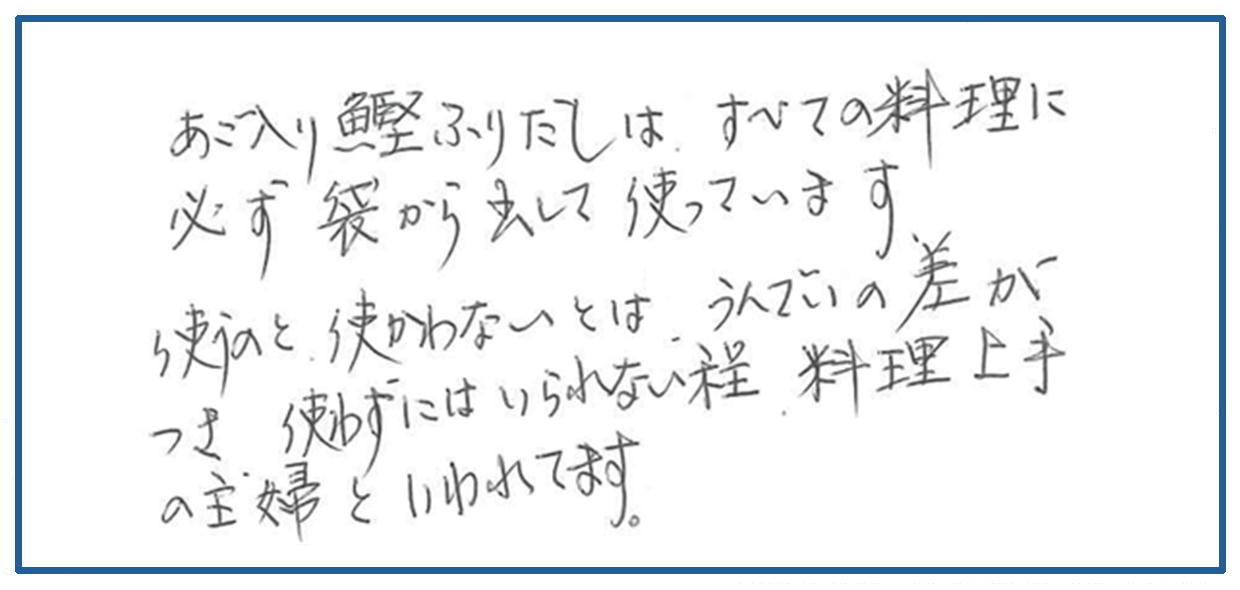 あご入り鰹ふりだしは、すべての料理に
必ず袋から出して使っています
使うのと、使かわないとは、うんでいの差が
つき 使わずにはいられない程、料理上手
の主婦といわれてます。